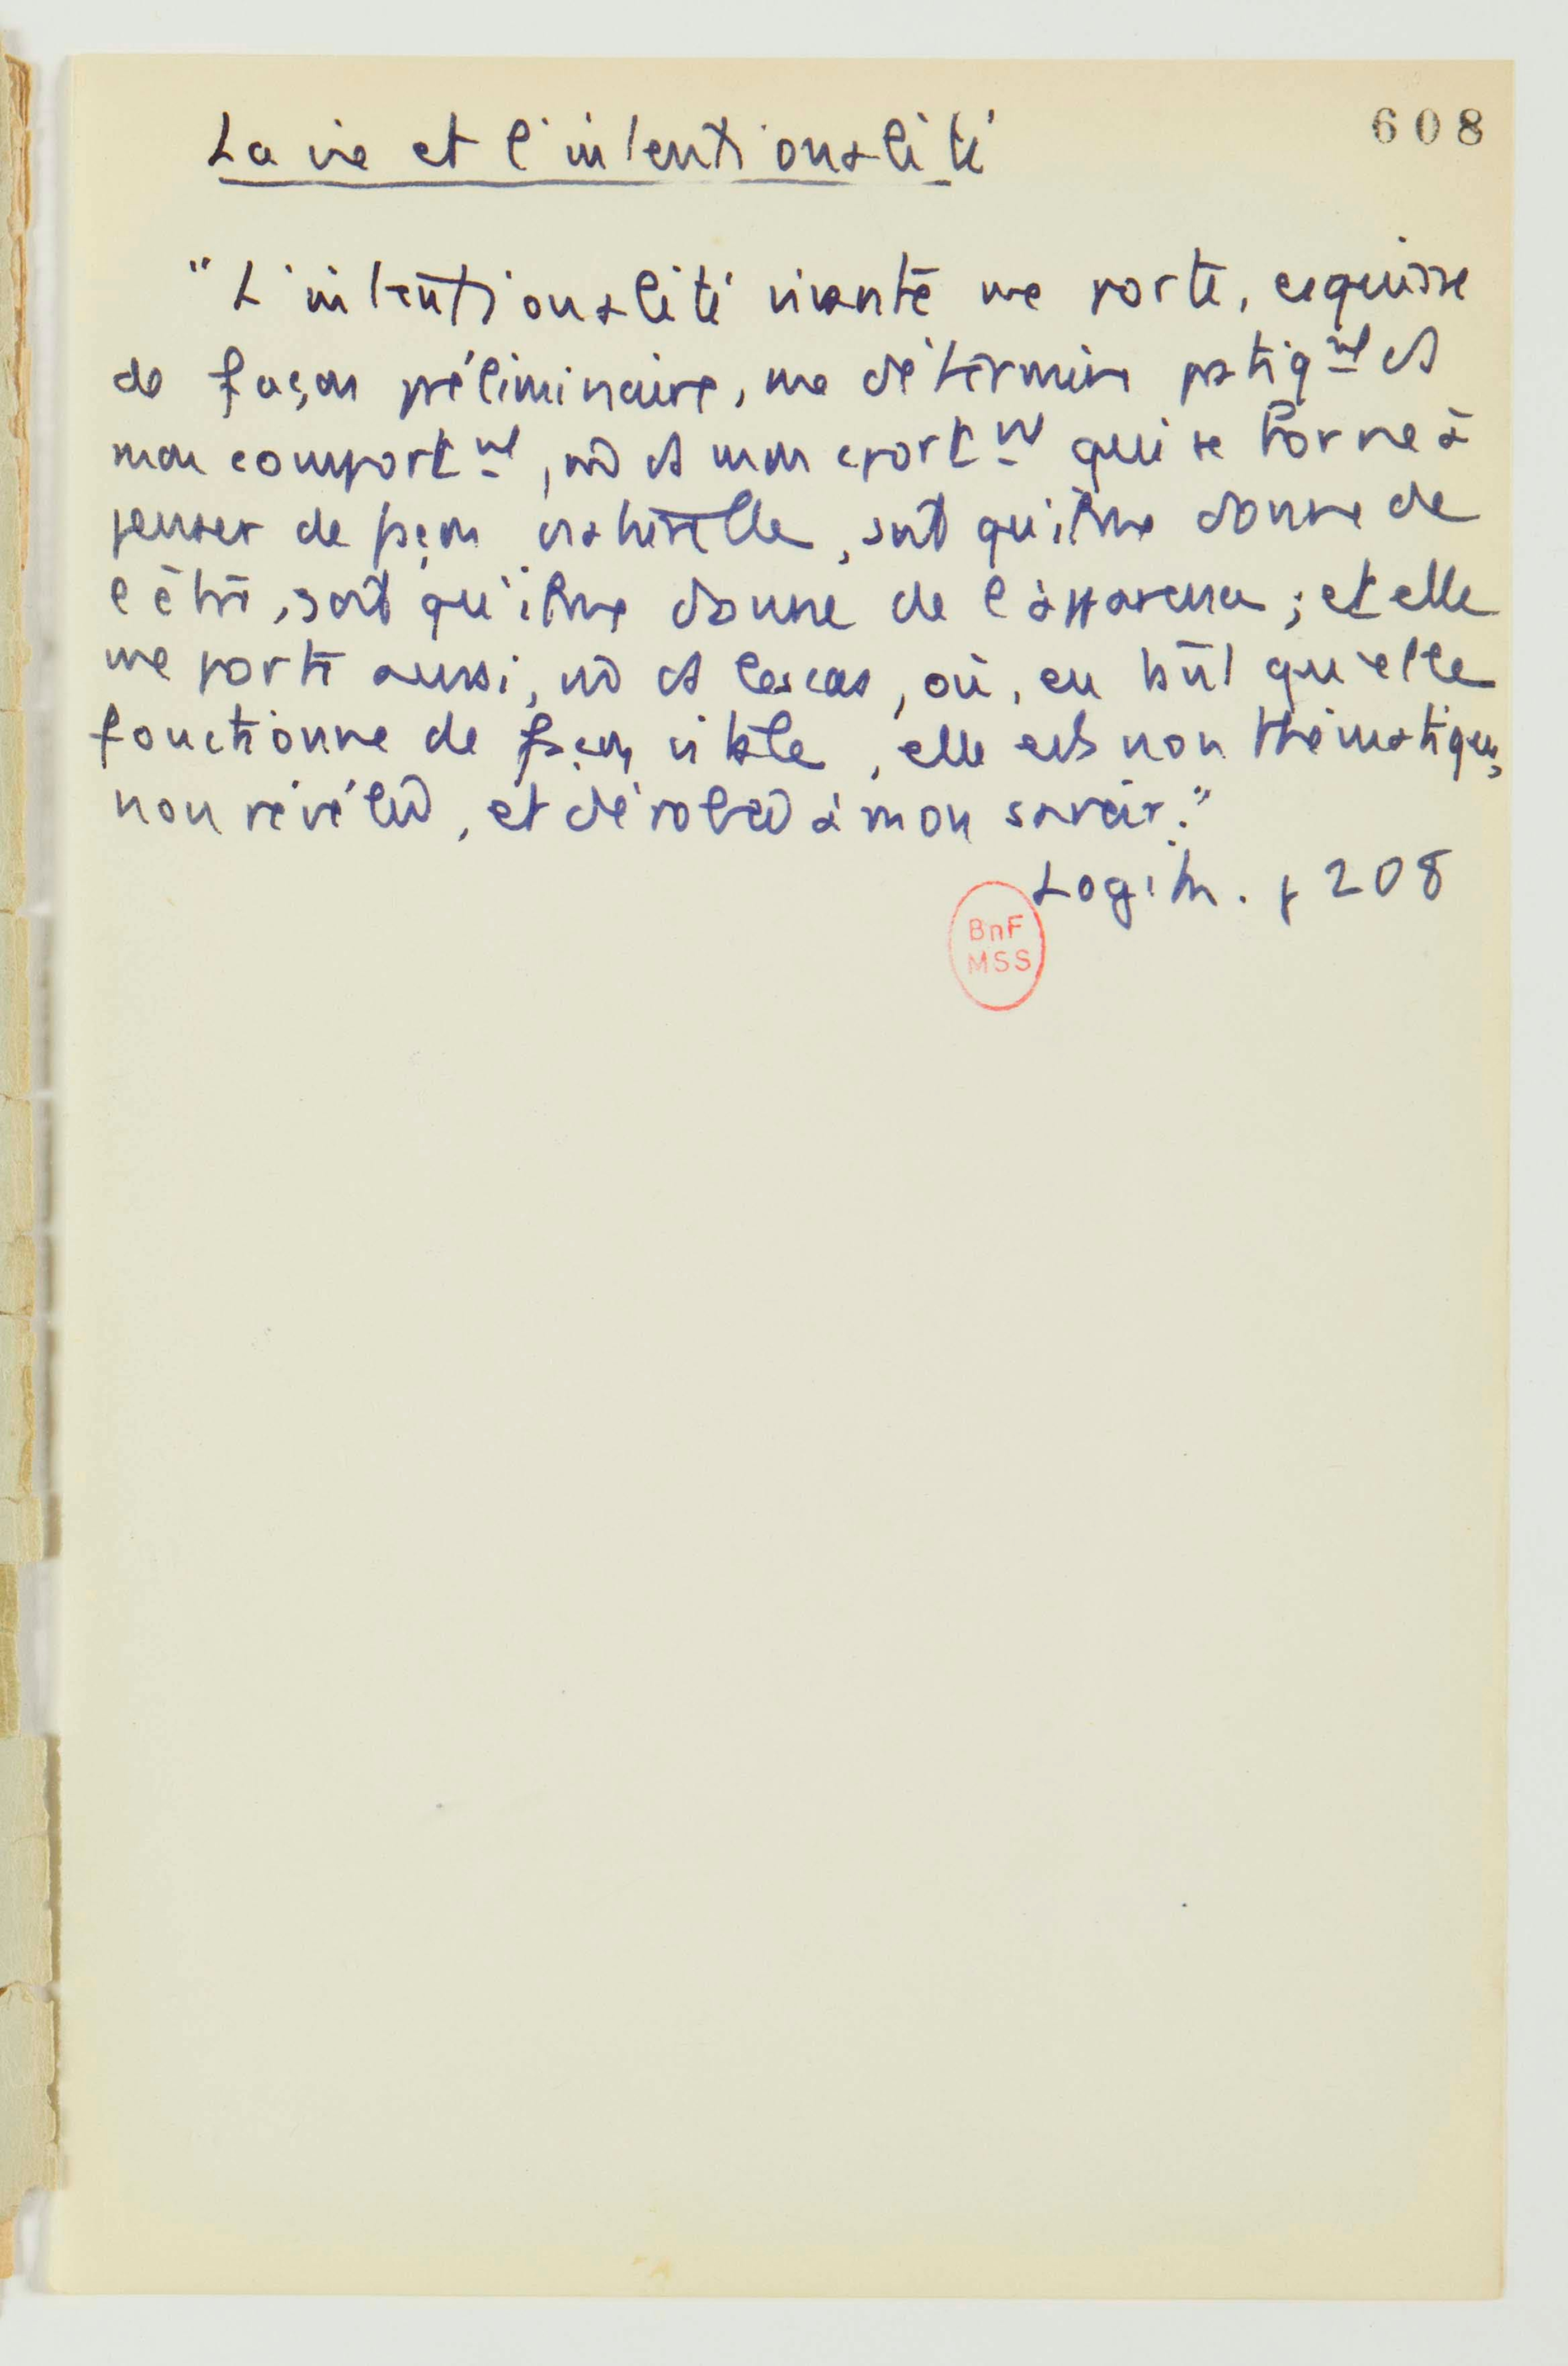 608
La vie et l'intentionalité
"L'intentionalité vivante me porte, esquisse
de façon préliminaire, me détermine patiqmt ds
mon comportmt, nō ds mon cportmt qui se borne à
penser de façon naturelle, soit qu'il me donne de
l'être, soit qu'il me donne de l'apparence ; et elle
me porte aussi, nō ds les cas, où, en tant qu'elle
fonctionne de façon, elle est non thématique,
non révélée, et dérobée à mon savoir."
Logik. p 208
BnF
MSS